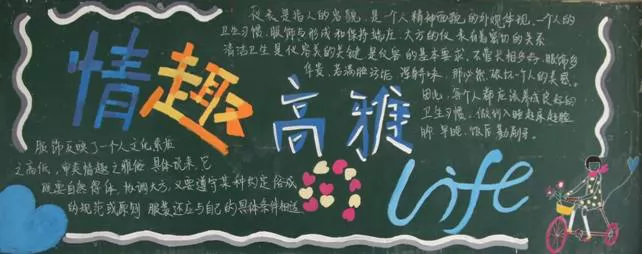 仪表是指人的容貌,是一个人精神面貌的外观体现,一个人的
卫生习惯,服饰与形成和保持端庄,大方的仪表有着密切的关系
清洁卫生是仪容美的关键是仪容的基本要求,不管长相多好,服饰多
华贵,若满脸污垢,浑身,那必然破坏一个人的美感。
因此,每个人都应该养成良好的
卫生习惯,做到入睡起床洗脸
脚,早晚,饭后勤刷牙。
情趣
高雅
服饰反映了一个人文化素质
之高低,审美情趣之雅俗具体说来,它
既要自然得体,协调大方,又要遵守某种约定俗成
的规范或原则服装还应与自己的具体条件相适
Life